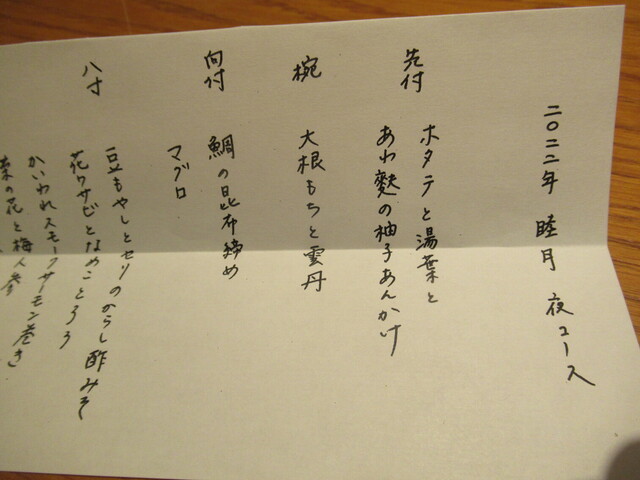 二〇二二年 睦月 夜コース
先付
ホタテと湯葉と
あわ麩の柚子あんかけ
椀
大根もちと雲丹
向付
鯛の昆布締め
マグロ
八寸
豆もやしとセリのからし酢みそ
花ワサビとなめことろろ
かいわれスモークサーモン巻き
菜の花と梅人参